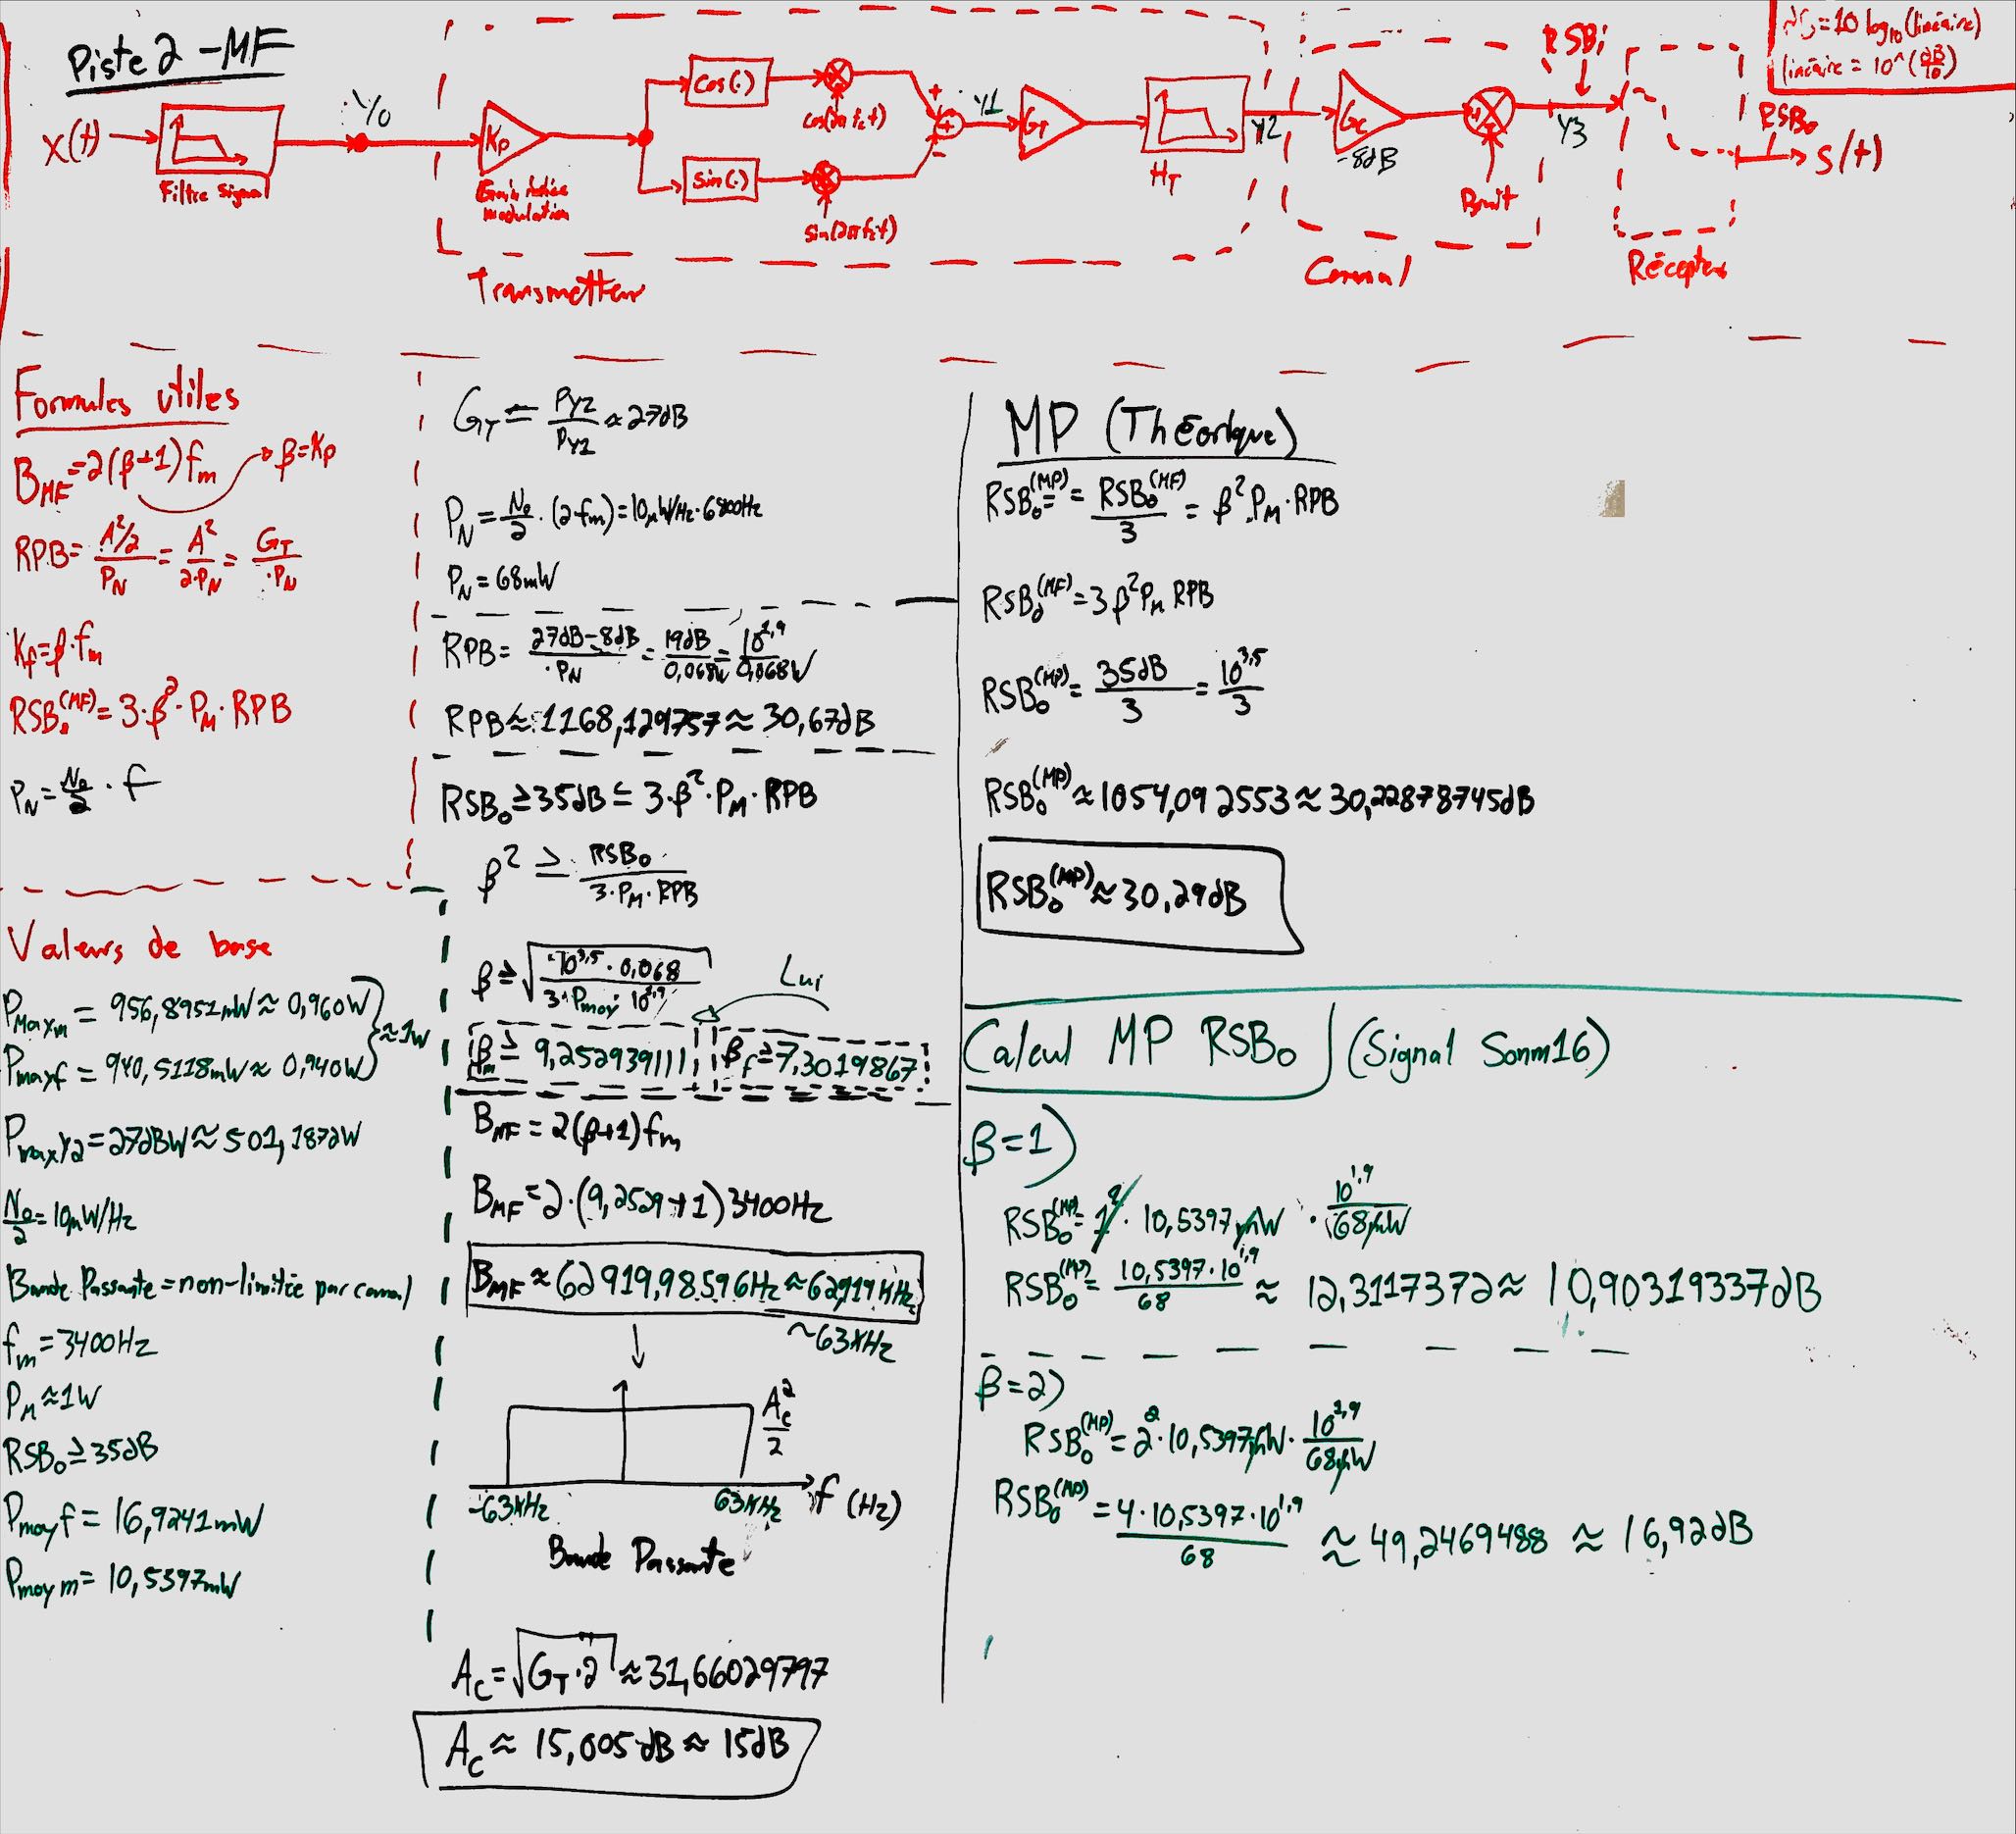 Piste 2 - MF
X(t)
Filtre signal
Y0
Kp
modulation
cos(·)
cos(2πfct)
sin(·)
sin(2πfct)
+
-
Y1
GT
HT
Y2
Gc
-8dB
Bruit
RSBi
Y3
RSBo
S(t)
= 10 log10(linéaire)
linéaire = 10^(dB/10)
Transmetteur
Cannal
Récepteur
Formules utiles
BMF = 2(β+1)fm → β = Kp
RPB = (A²/2)/PN = A²/(2·PN) = GT/·PN
Kf = β·fm
RSBo(MF) = 3·β²·PM·RPB
PN = N0/2 · f
Valeurs de base
PMaxm = 956,8951mW ≈ 0,960W
Pmaxf = 940,5118mW ≈ 0,940W
≈ 1W
PmaxY2 = 27dBW ≈ 501,1872W
N0/2 = 10μW/Hz
Bande Passante = non-limitée par canal
fm = 3400Hz
PM ≈ 1W
RSBo ≥ 35dB
Pmoyf = 16,9241mW
Pmoym = 10,5397mW
GT = PY2/PY1 ≈ 27dB
PN = N0/2 · (2fm) = 10μW/Hz · 6800Hz
PN = 68mW
RPB = (27dB-8dB)/·PN = 19dB/0,068W = 10^1,9/0,068W
RPB ≈ 1168,129757 ≈ 30,67dB
RSBo ≥ 35dB ≤ 3·β²·PM·RPB
β² ≥ RSBo/(3·PM·RPB)
β ≥ √(10^3,5 · 0,068/(3·Pmoy·10^1,9))
Lui
βm ≥ 9,252939111 βf ≥ 7,3019867
BMF = 2(β+1)fm
BMF = 2·(9,2529+1)3400Hz
BMF ≈ 62919,98596Hz ≈ 62,919kHz
~63kHz
Ac²/2
-63kHz 63kHz f (Hz)
Bande Passante
Ac = √(GT·2) ≈ 31,66029797
Ac ≈ 15,005dB ≈ 15dB
MP (Théorique)
RSBo(MP) = RSBo(MF)/3 = β²·PM·RPB
RSBo(MF) = 3β²PM RPB
RSBo(MP) = 35dB/3 = 10^3,5/3
RSBo(MP) ≈ 1054,092553 ≈ 30,22878745dB
RSBo(MP) ≈ 30,29dB
Calcul MP RSBo (Signal Sonm16)
β=1)
RSBo(MP) = 1² · 10,5397mW · 10^1,9/68mW
RSBo(MP) = 10,5397·10^1,9/68 ≈ 12,3117372 ≈ 10,90319337dB
β=2)
RSBo(MP) = 2²·10,5397mW · 10^1,9/68mW
RSBo(MP) = 4·10,5397·10^1,9/68 ≈ 49,2469488 ≈ 16,92dB